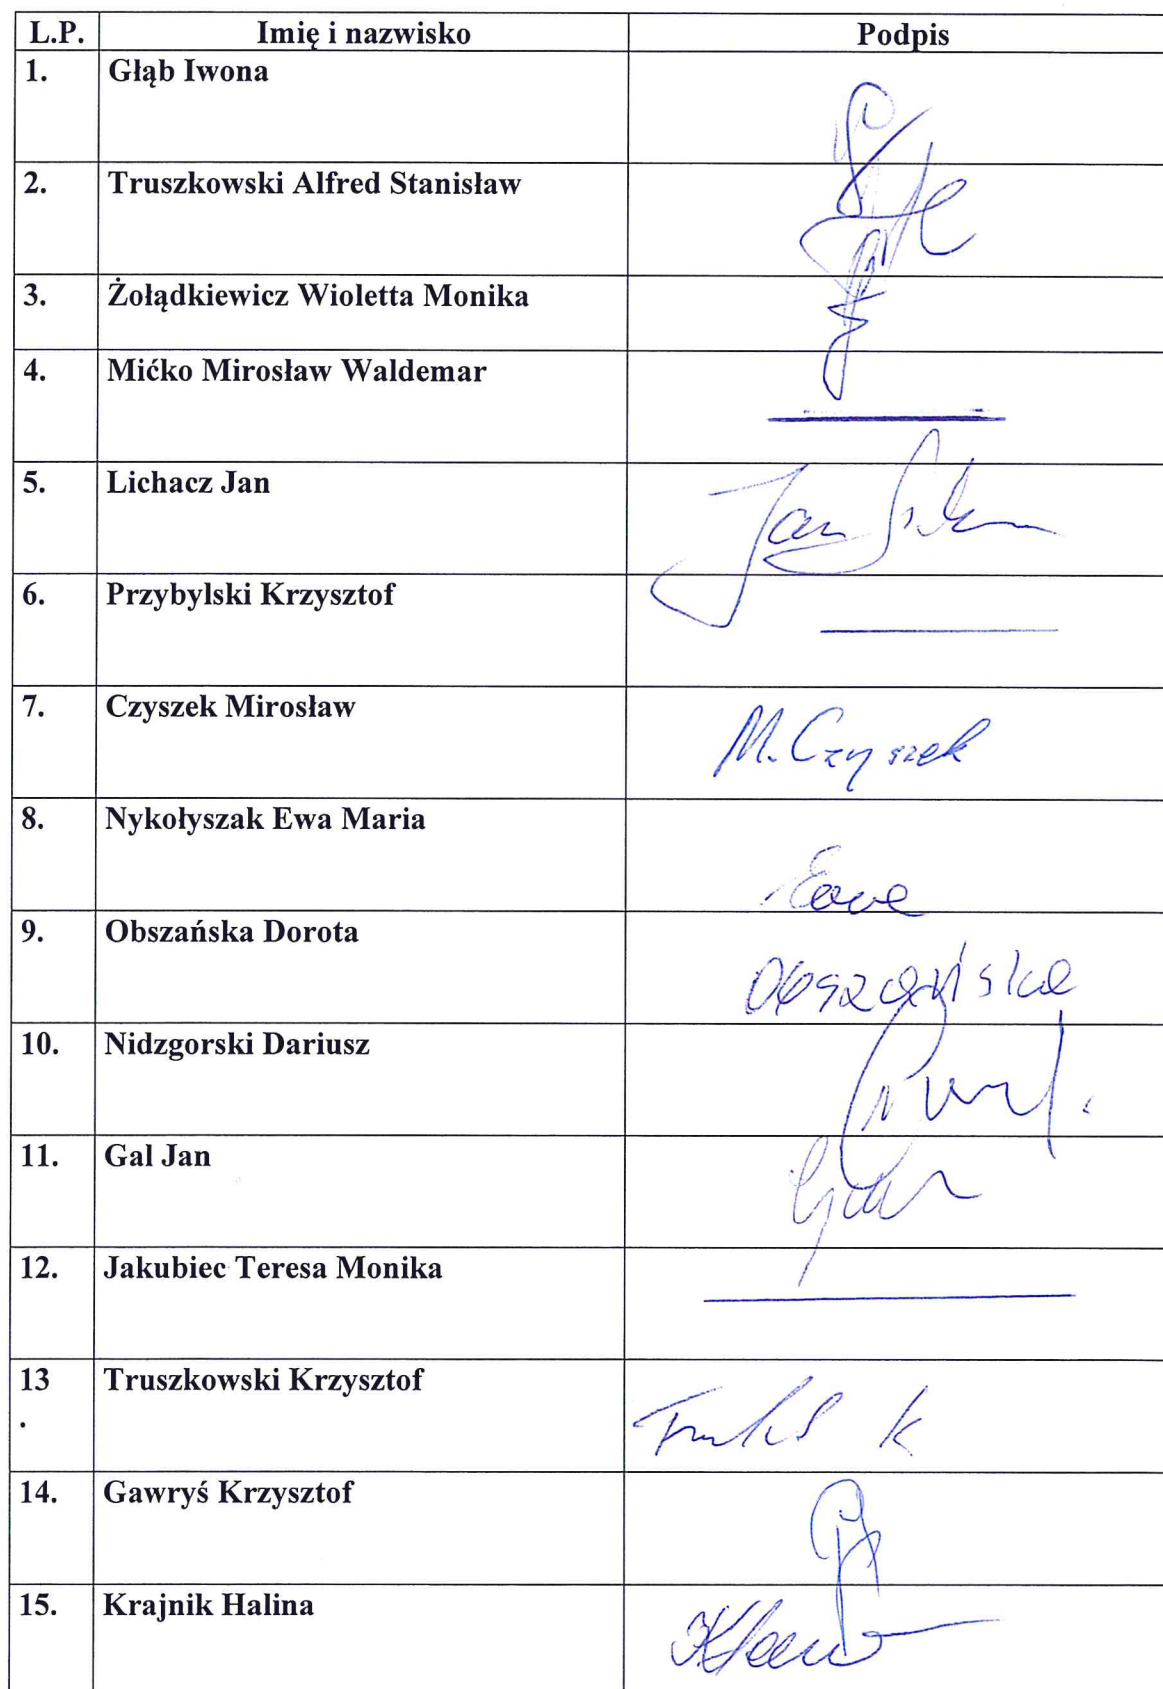 L.P. Imię i nazwisko Podpis
1. Głąb Iwona
2. Truszkowski Alfred Stanisław
3. Żołądkiewicz Wioletta Monika
4. Mićko Mirosław Waldemar
5. Lichacz Jan Jan
6. Przybylski Krzysztof
7. Czyszek Mirosław M. Czyszek
8. Nykołyszak Ewa Maria
9. Obszańska Dorota Obszańska
10. Nidzgorski Dariusz
11. Gal Jan
12. Jakubiec Teresa Monika
13
.
Truszkowski Krzysztof
14. Gawryś Krzysztof
15. Krajnik Halina